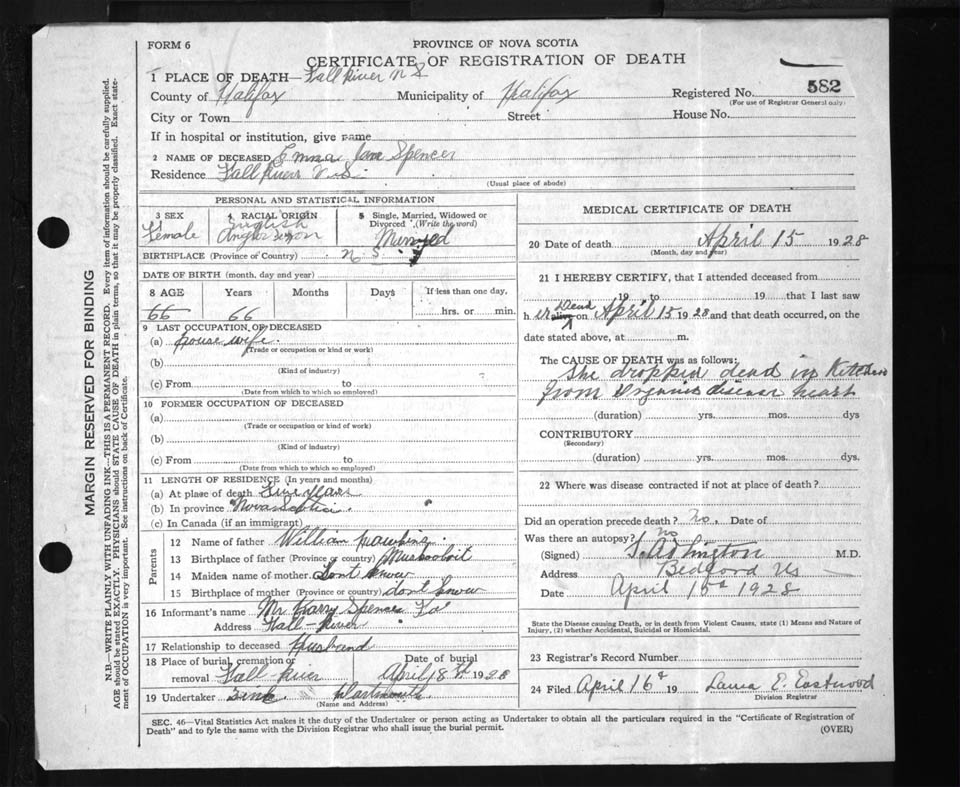 FORM 6
PROVINCE OF NOVA SCOTIA
CERTIFICATE OF REGISTRATION OF DEATH
1 PLACE OF DEATH—Fall River N S
County of Halifax Municipality of Halifax Registered No. 582
(For use of Registrar General only)
City or Town Street House No.
If in hospital or institution, give name
2 NAME OF DECEASED Emma Jane Spencer
Residence Fall River N.S.
(Usual place of abode)
MARGIN RESERVED FOR BINDING
N.B.—WRITE PLAINLY WITH UNFADING INK—THIS IS A PERMANENT RECORD. Every item of information should be carefully supplied.
AGE should be stated EXACTLY. PHYSICIANS should STATE CAUSE OF DEATH in plain terms, so that it may be properly classified. Exact state-
ment of OCCUPATION is very important. See instructions on back of Certificate.
PERSONAL AND STATISTICAL INFORMATION
3 SEX 4 RACIAL ORIGIN 5 Single, Married, Widowed or
Divorced (Write the word)
Female English
Anglo Saxon Married
BIRTHPLACE (Province or Country) N S
DATE OF BIRTH (month, day and year)
8 AGE Years Months Days If less than one day,
66 66 hrs. or min.
9 LAST OCCUPATION OF DECEASED
(a) house wife
(Trade or occupation or kind or work)
(b)
(Kind of industry)
(c) From to
(Date from which to which so employed)
10 FORMER OCCUPATION OF DECEASED
(a)
(Trade or occupation or kind of work)
(b)
(Kind of industry)
(c) From to
(Date from which to which so employed)
11 LENGTH OF RESIDENCE (In years and months)
(a) At place of death years
(b) In province Nova Scotia
(c) In Canada (if an immigrant)
Parents
12 Name of father William
13 Birthplace of father (Province or country) Musquodoboit
14 Maiden name of mother Dont know
15 Birthplace of mother (Province or country) dont know
16 Informant's name Mr Harry Spencer
Address Fall-River
17 Relationship to deceased Husband
18 Place of burial, cremation or Date of burial
removal Fall-River April 18th 1928
19 Undertaker Zink Dartmouth
(Name and Address)
MEDICAL CERTIFICATE OF DEATH
20 Date of death April 15 1928
(Month, day and year)
21 I HEREBY CERTIFY, that I attended deceased from
19 to 19 that I last saw
Dead
h er alive on April 15 1928 and that death occurred, on the
date stated above, at m.
The CAUSE OF DEATH was as follows:
She dropped dead in Kitchen
from Organic disease heart
(duration) yrs. mos. dys
CONTRIBUTORY
(Secondary)
(duration) yrs. mos. dys.
22 Where was disease contracted if not at place of death?
Did an operation precede death? No. Date of
Was there an autopsy? No
(Signed) M.D.
Address Bedford NS
Date April 15th 1928
State the Disease causing Death, or in death from Violent Causes, state (1) Means and Nature of
Injury, (2) whether Accidental, Suicidal or Homicidal.
23 Registrar's Record Number
24 Filed April 16th 19 Laura E. Eastwood
Division Registrar
SEC. 46—Vital Statistics Act makes it the duty of the Undertaker or person acting as Undertaker to obtain all the particulars required in the "Certificate of Registration of
Death" and to fyle the same with the Division Registrar who shall issue the burial permit.
(OVER)